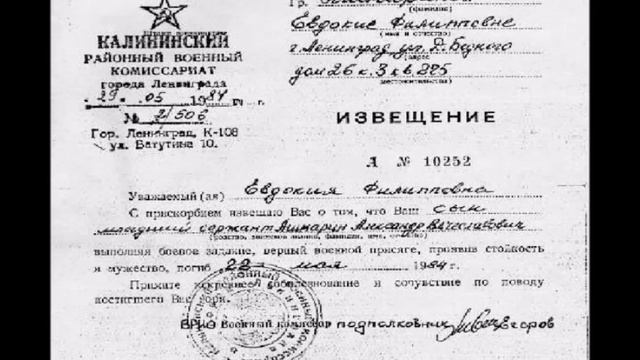 КАЛИНИНСКИЙ
РАЙОННЫЙ ВОЕННЫЙ
КОМИССАРИАТ
города Ленинграда
29. 05 1984 г.
№ 2/506
Гор. Ленинград, К-108
ул. Ватутина 10.
Гр.
(фамилия)
Евдокие Филипповне
(имя и отчество)
г. Ленинград ул. Д. Бедного
адрес
дом 26 к. 3 кв. 275
местожительства
ИЗВЕЩЕНИЕ
А № 10252
Уважаемый (ая) Евдокия Филипповна
С прискорбием извещаю Вас о том, что Ваш сын
младший сержант Александр Вячеславович
выполняя боевое задание, верный военной присяге, проявив стойкость
и мужество, погиб 22 мая 1984 г.
Примите искреннее соболезнование и сочувствие по поводу
постигшего Вас горя.
ВРИО Военный комиссар подполковник